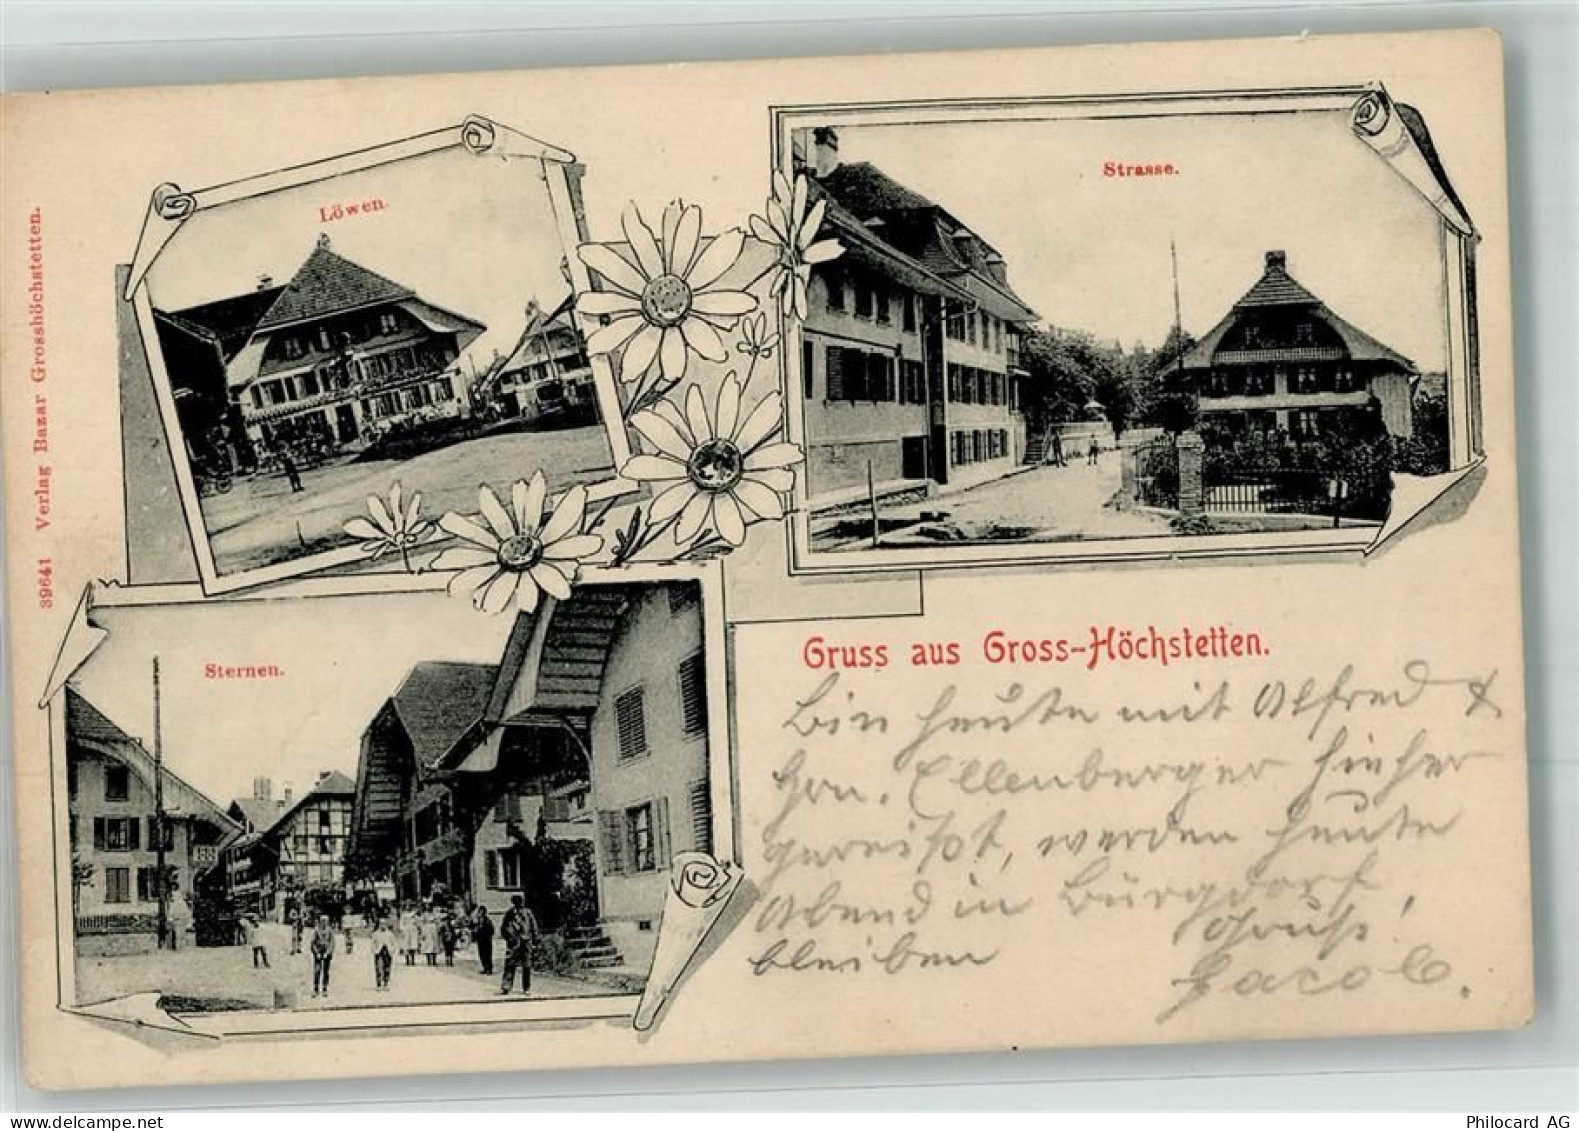 Löwen.
Strasse.
39641 Verlag Bazar Grosshöchstetten.
Sternen.
Gruss aus Gross-Höchstetten.
Bin heute mit Alfred &
Hrn. Ellenberger hieher
gereißt, werden heute
Abend in Burgdorf
bleiben
Gruß
Jacob.
www.delcampe.net
Philocard AG